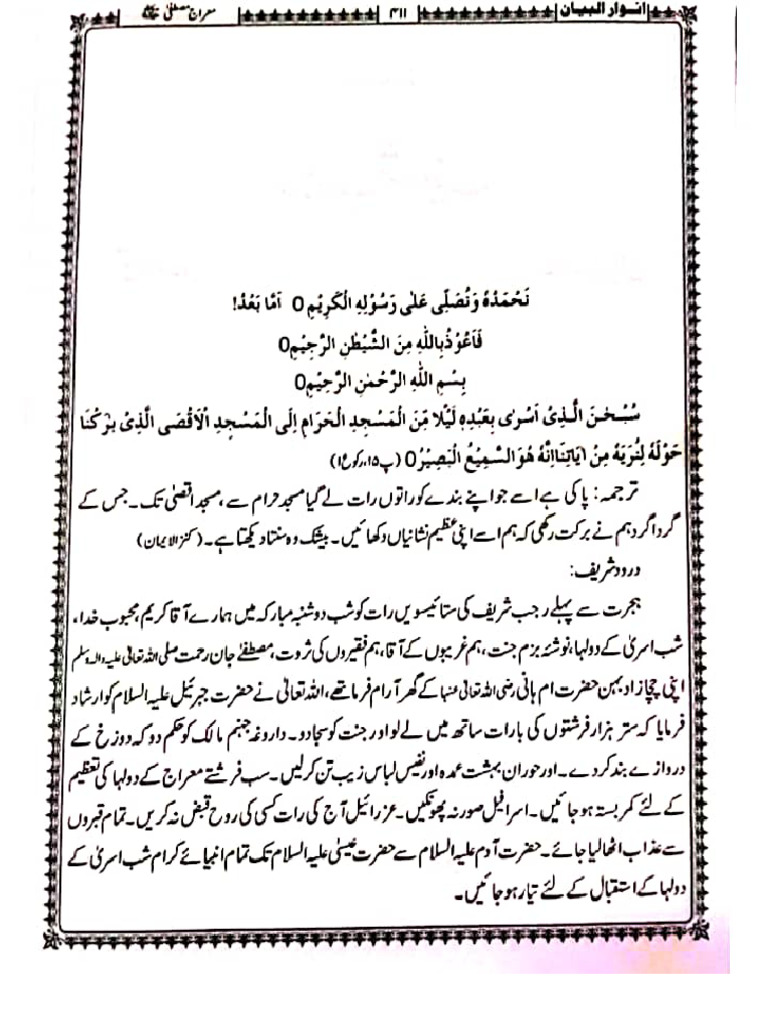 انوار البیان ۴۱۱ معراج مصطفیٰ ﷺ
نَحْمَدُهٗ وَنُصَلِّی عَلٰی رَسُوْلِهِ الْكَرِیْمِ ۝ اَمَّا بَعْدُ!
فَاَعُوْذُ بِاللّٰهِ مِنَ الشَّیْطٰنِ الرَّجِیْمِ ۝
بِسْمِ اللّٰهِ الرَّحْمٰنِ الرَّحِیْمِ ۝
سُبْحٰنَ الَّذِیْ اَسْرٰی بِعَبْدِهٖ لَیْلًا مِّنَ الْمَسْجِدِ الْحَرَامِ اِلَی الْمَسْجِدِ الْاَقْصَی الَّذِیْ بٰرَكْنَا
حَوْلَهٗ لِنُرِیَهٗ مِنْ اٰیَاتِنَا اِنَّهٗ هُوَ السَّمِیْعُ الْبَصِیْرُ ۝ (پ۱۵، رکوع۱)
ترجمہ: پاکی ہے اسے جو اپنے بندے کو راتوں رات لے گیا مسجد حرام سے، مسجد اقصیٰ تک۔ جس کے
گرداگرد ہم نے برکت رکھی کہ ہم اسے اپنی عظیم نشانیاں دکھائیں۔ بیشک وہ سنتا دیکھتا ہے۔ (کنز الایمان)
درود شریف:
ہجرت سے پہلے رجب شریف کی ستائیسویں رات کو شب دوشنبہ مبارکہ میں ہمارے آقا کریم، محبوب خدا،
شب اسریٰ کے دولہا، نوشۂ بزم جنت، ہم غریبوں کے آقا، ہم فقیروں کی ثروت، مصطفےٰ جان رحمت صلی اللہ تعالیٰ علیہ والہ وسلم
اپنی چچازاد بہن حضرت ام ہانی رضی اللہ تعالیٰ عنہا کے گھر آرام فرما تھے، اللہ تعالیٰ نے حضرت جبرئیل علیہ السلام کو ارشاد
فرمایا کہ ستر ہزار فرشتوں کی بارات ساتھ میں لے لو اور جنت کو سجا دو۔ داروغہ جہنم مالک کو حکم دو کہ دوزخ کے
دروازے بند کر دے۔ اور حوران بہشت عمدہ اور نفیس لباس زیب تن کر لیں۔ سب فرشتے معراج کے دولہا کی تعظیم
کے لئے کمربستہ ہو جائیں۔ اسرافیل صور نہ پھونکیں۔ عزرائیل آج کی رات کسی کی روح قبض نہ کریں۔ تمام قبروں
سے عذاب اٹھا لیا جائے۔ حضرت آدم علیہ السلام سے حضرت عیسیٰ علیہ السلام تک تمام انبیائے کرام شب اسریٰ کے
دولہا کے استقبال کے لئے تیار ہو جائیں۔